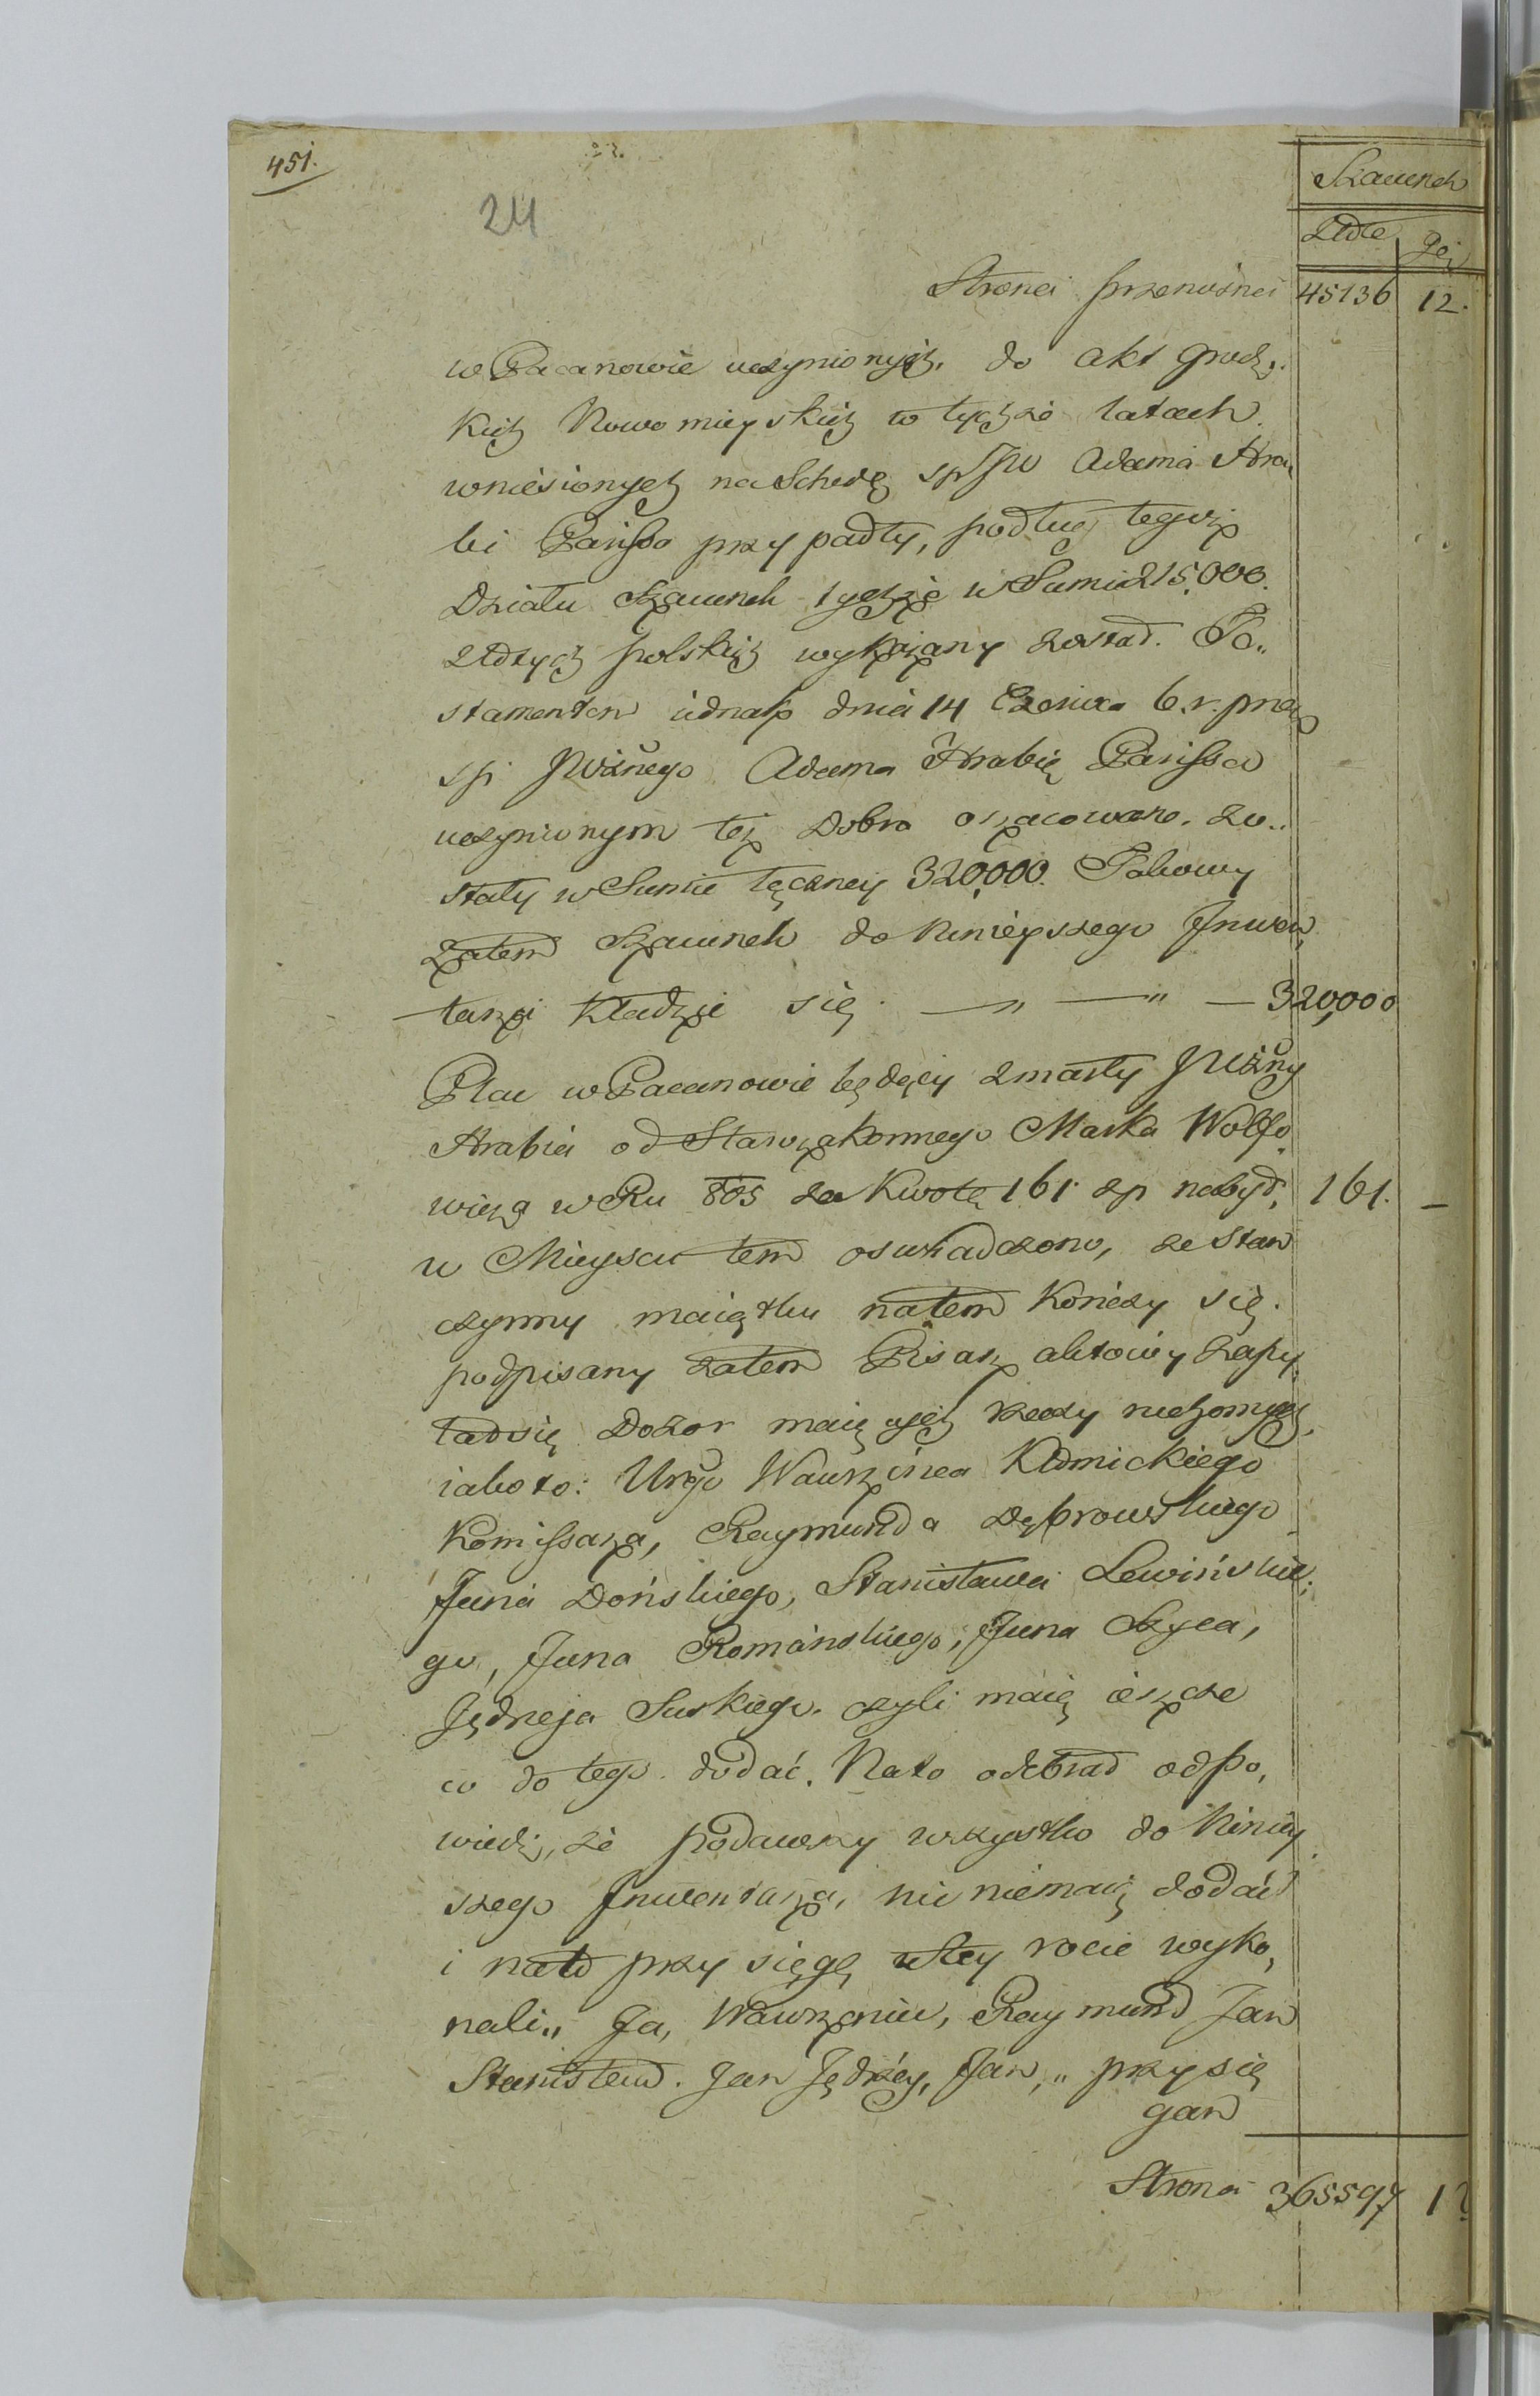 451.
24
Szacunek
Złote gr
Strona przenośna 45136 12.
w Pacanowie uczynionych, do akt grodz,
kich Nowomieyskich w tychże latach
wniesionych na Schedę sp JW Adama Hra„
bi Parissa przypadły, podług tegoż
Działu Szacunek tychże w Sumie 215,000.
złotych polskich wykazany został. Te„
stamentem iednak dnia 14 Czerwca b. r. przez
sp JWżnego Adama Hrabię Parissa
uczynionym też Dobra oszacowane zo„
stały w Sumie łączney 320,000. Takowy
zatem Szacunek do Ninieyszego Inwen„
tarza kładzie się — „ — „ — 320,000
Plac w Pacanowie będący zmarły JWżny
Hrabia od Starozakonnego Marka Wolfo„
wicza w Ru 805 za Kwotę 161 zp nabył, 161. —
w Mieyscu tem oswiadczono, że stan
czynny maiątku na tem kończy się.
podpisany zatem Pisarz aktowy zapy„
tał się Dozor maiących rzeczy ruchomych,
iako to: Urgo Wawrzińca Kłomickiego
Komissarza, Raymunda Dąbrowskiego
Jana Dońskiego, Stanisława Lewińskie„
go, Jana Romańskiego, Jana Szyca,
Jędrzeja Suskiego. czyli maią ieszcze
co do tego dodać. Na to odebrał odpo„
wiedź, że podawszy wszystko do Niniey„
szego Inwentarza, nic niemaią dodać
i na to przysięgę w tey rocie wyko„
nali„ Ja, Wawrzeniec, Raymund Jan
Stanisław. Jan Jędrzey, Jan, „ przysię
gam
Strona 365597 12